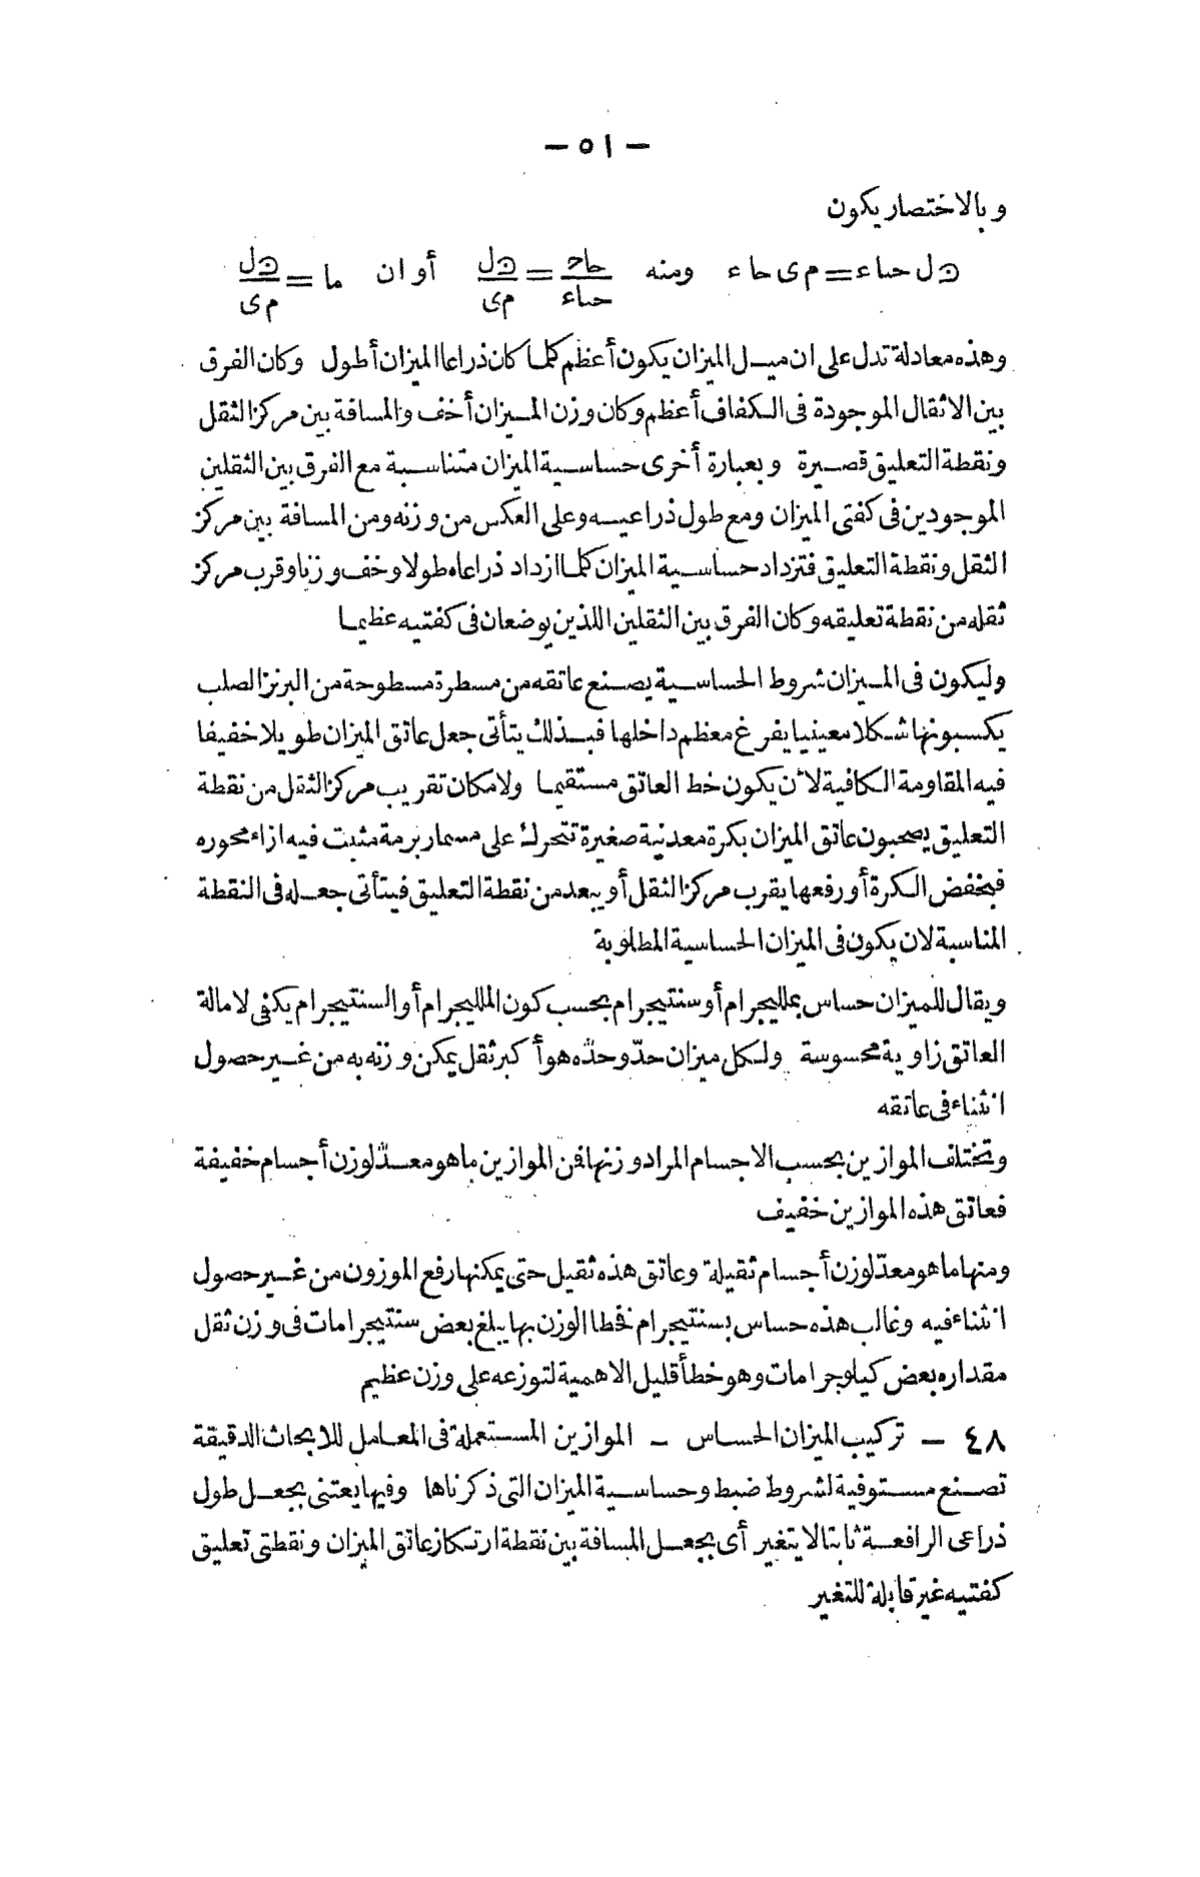 — ٥١ —
وبالاختصار يكون
ﻭل حتاء = م ى حا ء ومنه حاح/حتاء = ﻭل/م ى أو ان ما = ﻭل/م ى
وهذه معادلة تدل على ان ميل الميزان يكون أعظم كلما كان ذراعا الميزان أطول وكان الفرق
بين الاثقال الموجودة فى الكفاف أعظم وكان وزن الميزان أخف والمسافة بين مركز الثقل
ونقطة التعليق قصيرة وبعبارة أخرى حساسية الميزان متناسبة مع الفرق بين الثقلين
الموجودين فى كفتى الميزان ومع طول ذراعيه وعلى العكس من وزنه ومن المسافة بين مركز
الثقل ونقطة التعليق فتزداد حساسية الميزان كلما ازداد ذراعاه طولا وخف وزنا وقرب مركز
ثقله من نقطة تعليقه وكان الفرق بين الثقلين اللذين يوضعان فى كفتيه عظيما
وليكون فى الميزان شروط الحساسية يصنع عاتقه من مسطرة مسطوحة من البرنز الصلب
يكسبونها شكلا معينيا يفرغ معظم داخلها فبذلك يتأتى جعل عاتق الميزان طويلا خفيفا
فيه المقاومة الكافية لأن يكون خط العاتق مستقيما ولامكان تقريب مركز الثقل من نقطة
التعليق يصحبون عاتق الميزان بكرة معدنية صغيرة تتحرك على مسمار برمة مثبت فيه ازاء محوره
فبخفض الكرة أو رفعها يقرب مركز الثقل أو يبعد من نقطة التعليق فيتأتى جعله فى النقطة
المناسبة لان يكون فى الميزان الحساسية المطلوبة
ويقال للميزان حساس بملليجرام أو سنتيجرام بحسب كون الملليجرام أو السنتيجرام يكفى لامالة
العاتق زاوية محسوسة ولكل ميزان حدّ وحدّه هو أكبر ثقل يمكن وزنه به من غير حصول
انثناء فى عاتقه
وتختلف الموازين بحسب الاجسام المراد وزنها فمن الموازين ما هو معدّ لوزن أجسام خفيفة
فعاتق هذه الموازين خفيف
ومنها ما هو معدّ لوزن أجسام ثقيلة وعاتق هذه ثقيل حتى يمكنها رفع الموزون من غير حصول
انثناء فيه وغالب هذه حساس بسنتيجرام فخطا الوزن بها يبلغ بعض سنتيجرامات فى وزن ثقل
مقداره بعض كيلوجرامات وهو خطأ قليل الاهمية لتوزعه على وزن عظيم
٤٨ — تركيب الميزان الحساس — الموازين المستعملة فى المعامل للابحاث الدقيقة
تصنع مستوفية لشروط ضبط وحساسية الميزان التى ذكرناها وفيها يعتنى بجعل طول
ذراعى الرافعة ثابتا لا يتغير أى بجعل المسافة بين نقطة ارتكاز عاتق الميزان ونقطتى تعليق
كفتيه غير قابلة للتغير